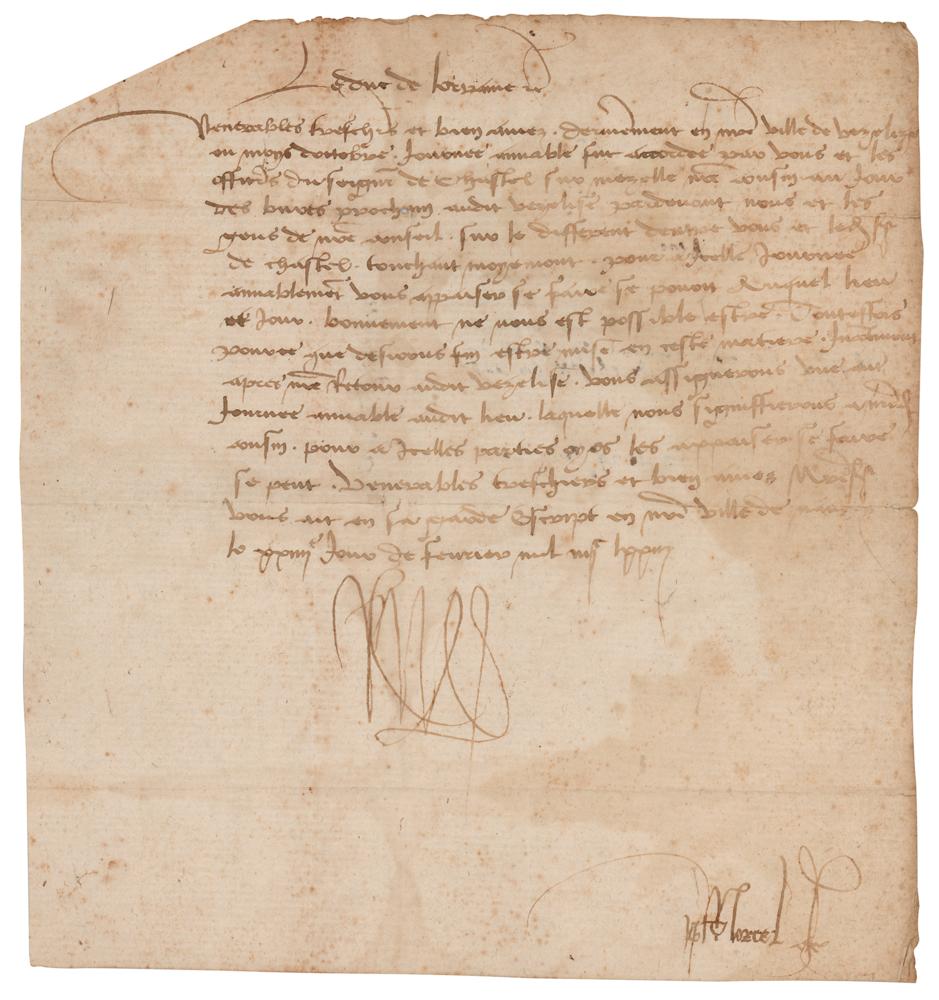 Le duc de lorraine etc
Venerables treschiers et bien amez . derniement en nre ville de vezelize
ou moys doctobre . Journee amiable fut accordee par vous et les
officrs du seignr de Chastel sur mezelle nre cousin au Jour
des bures prochain audit vezelise pardevant nous et les
gens de nre conseil . sur le different dentre vous et led sr
de chastel . touchant moyemont . pour a Icelle Journee
amiablement vous appaiser se faire se povoit Auquel lieu
et Jour . bonnement ne nous est possible estre . Toutesfois
pource que desirons fin estre mise en ceste matiere .
apres nre Retour audit vezelise . vous assignerons une aut
Journee amiable audit lieu . laquelle nous signiffierons a nred
cousin . pour a Icelles parties oyes les appaiser se faire
se peut . Venerables treschiers et bien amez nresr
vous ait en sa garde Escript en nre ville de
le xxiiiie Jour de fevrier mil iiiic lxxiii